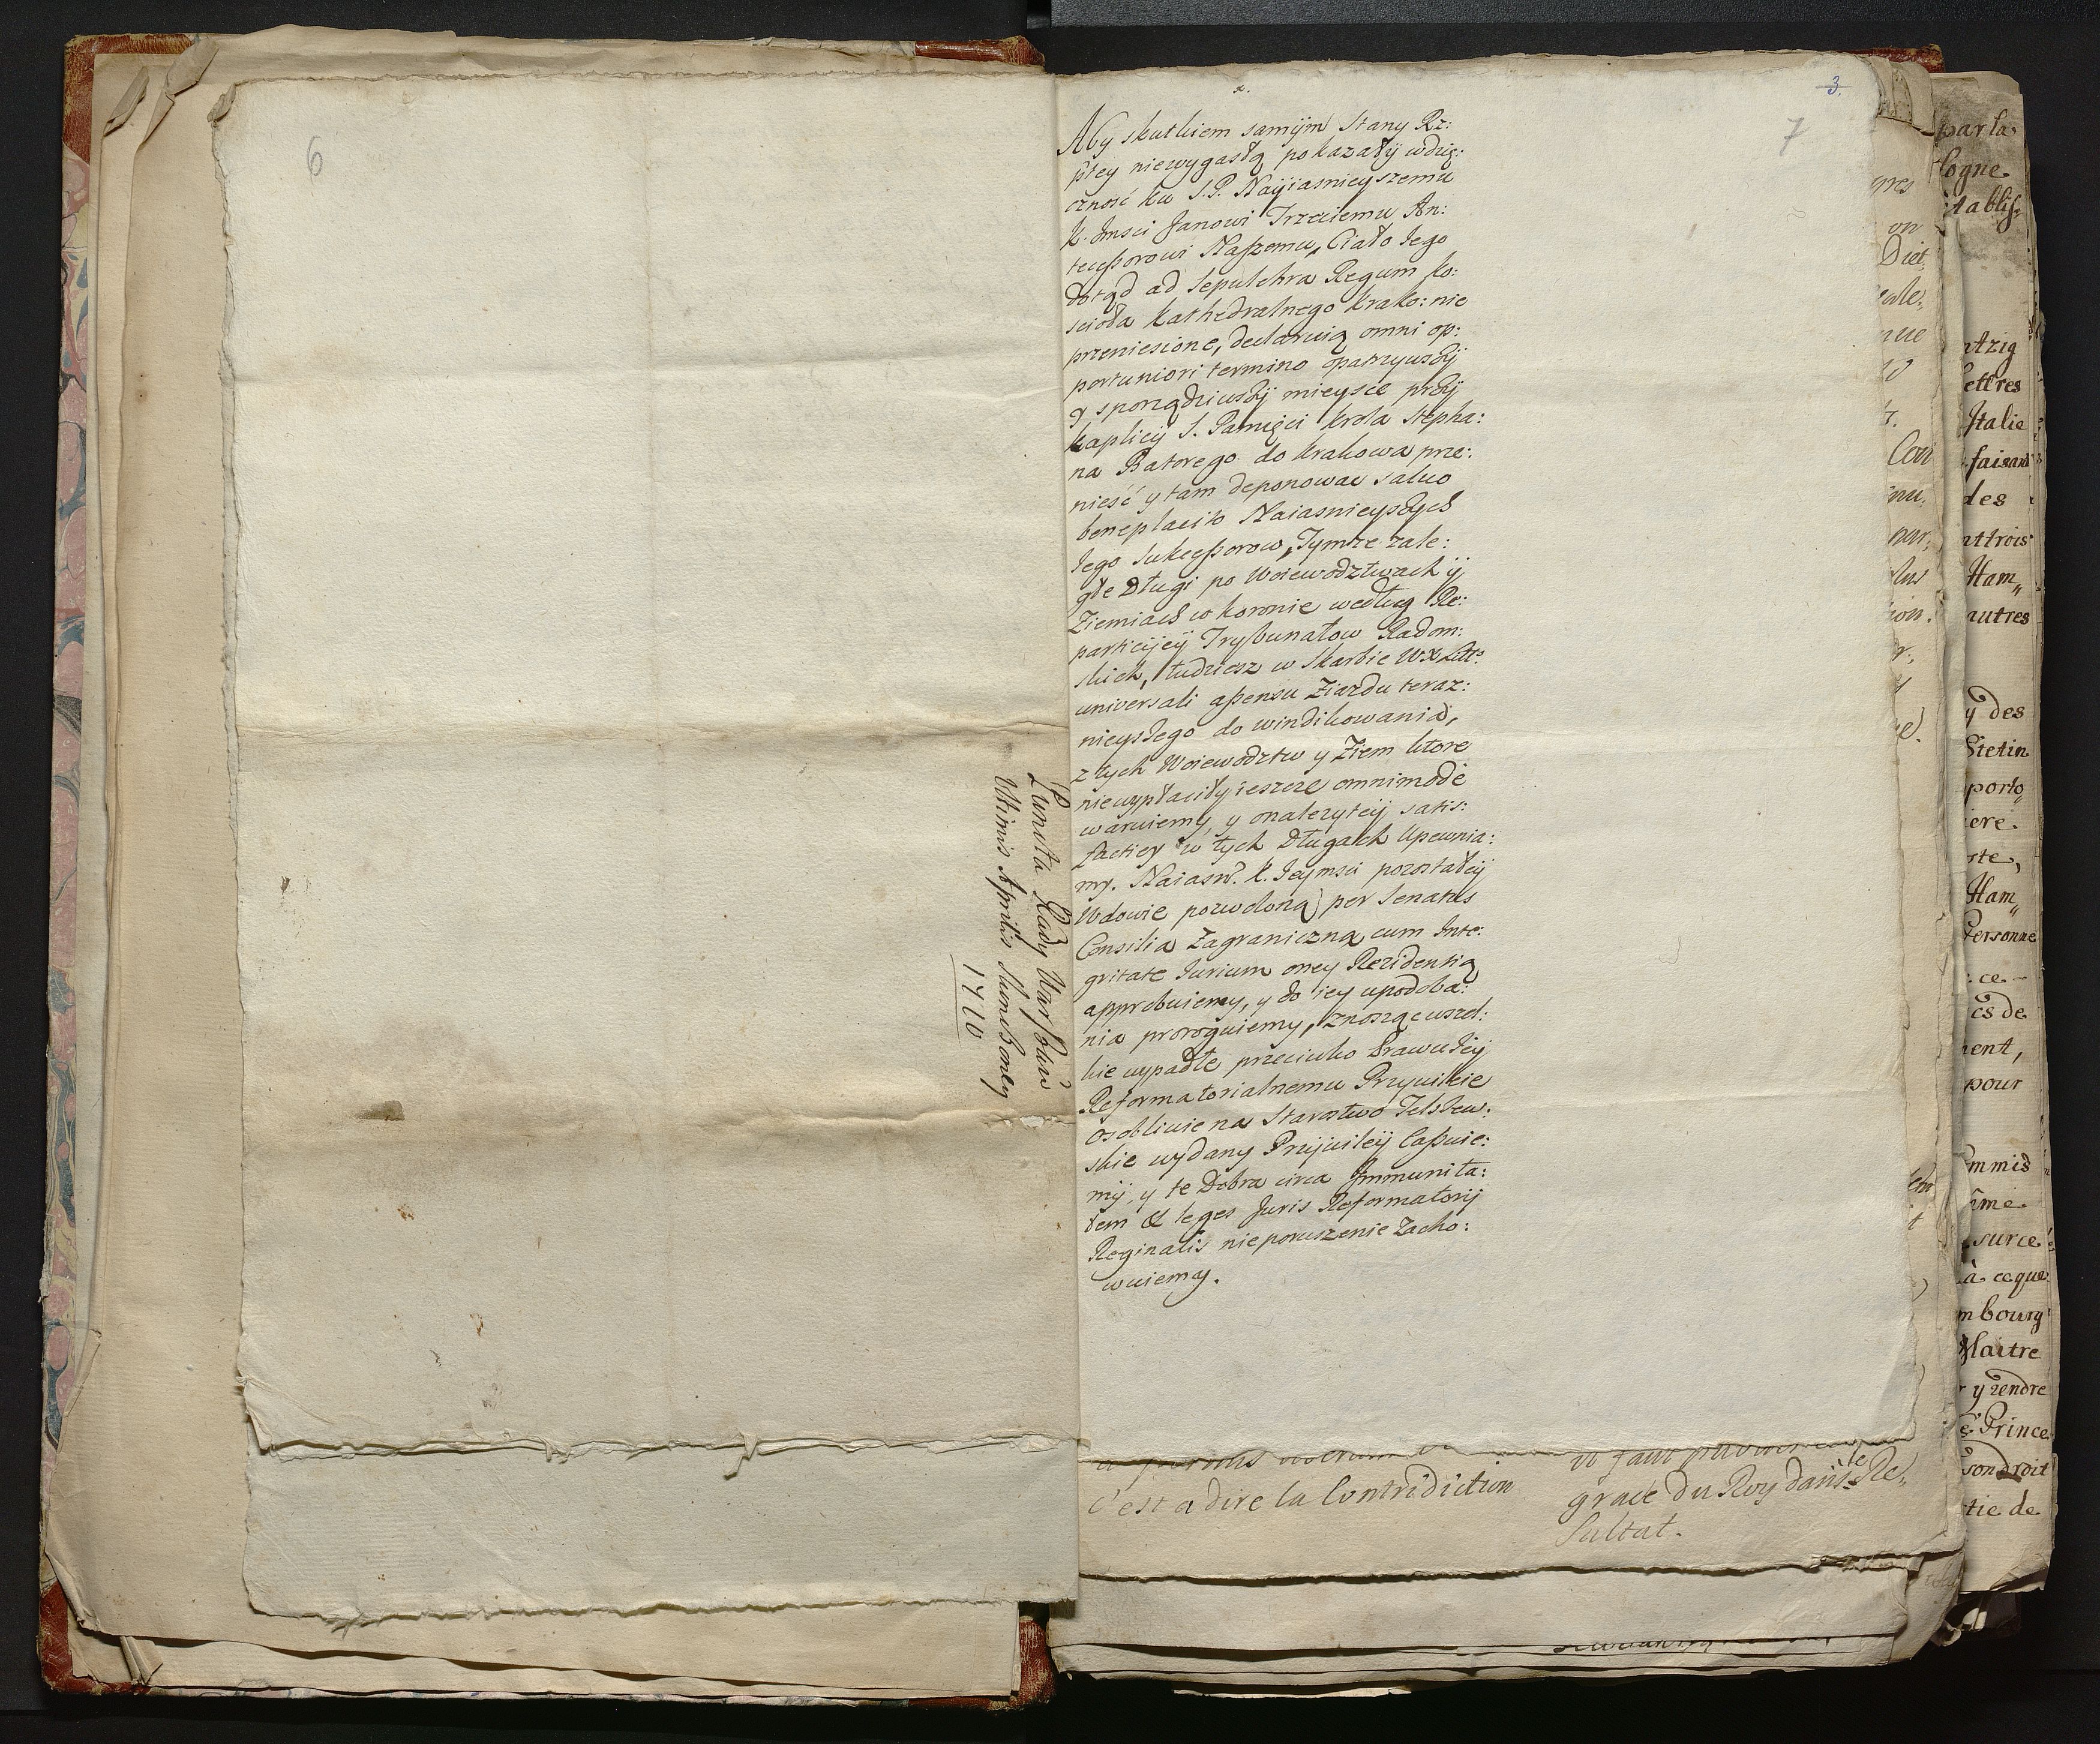 6
Punkta Rady Warszaw
Ultimis Aprilis
1710
3.
7
Aby skutkiem samÿm Stany Rz:
ptey niewygasłą pokazałÿ wdzię:
czność ku S.P. Nayiasnieyszemu
K. Jmsci Janowi Trzeciemu An:
tecessorowi Naszemu, Ciało Jego
dotąd ad Sepulchra Regum Ko:
scioła Kathedralnego Krako: nie
przeniesione, declaruią omni op:
portuniori termino opatrzywszÿ
y sporządziwszÿ mieysce przÿ
Kaplicÿ S. Pamięci Krola Stepha:
na Batorego do Krakowa prze:
nieść y tam deponować salvo
beneplacito Naiasnieyszych
Jego Sukcessorow, Tymże zale:
głe Długi po Woiewodztwach ÿ
Ziemiach w Koronie według Re:
particÿeÿ Trybunałow Radom:
skich, tudziesz w Skarbie WX Litt:
universali assensu Ziazdu teraz:
nieyszego do windikowania,
z tych Woiewodztw y Ziem ktore
niewypłaciłÿ ieszcze omnimode
waruiemy, y onalezyteÿ satis:
factiey w tych Długach upewnia:
my. Naiasn. K. Jeymsci pozostałeÿ
Wdowie pozwoloną per Senatus
Consilia Zagraniczną cum Inte:
gritate Jurium oney Rezidentią
approbuiemy, y do iey upodoba:
nia proroguiemy, znosząc wszel:
kie wypadłe przeciwko Prawu Jeÿ
Reformatorialnemu Przywileie
osobliwie na Starostwo
skie wydany Przÿwileÿ Cassuie:
mÿ, y te Dobra circa Immunita:
tem & leges Juris Reformatorÿ
Reginalis nieporuszenie Zacho:
wuiemy.
c'est a dire la Contridiction
grace du Roy dans le Re,
sultat.
par la
logne
établis,
Diet,
ntzig
lettres
Italie
faisant
des
Ham,,
autres
y des
Stetin
porto,
Ham,,
Personne
pour
surce
à ce que
mbourg
Maitre
y rendre
Prince
son droit
tie de